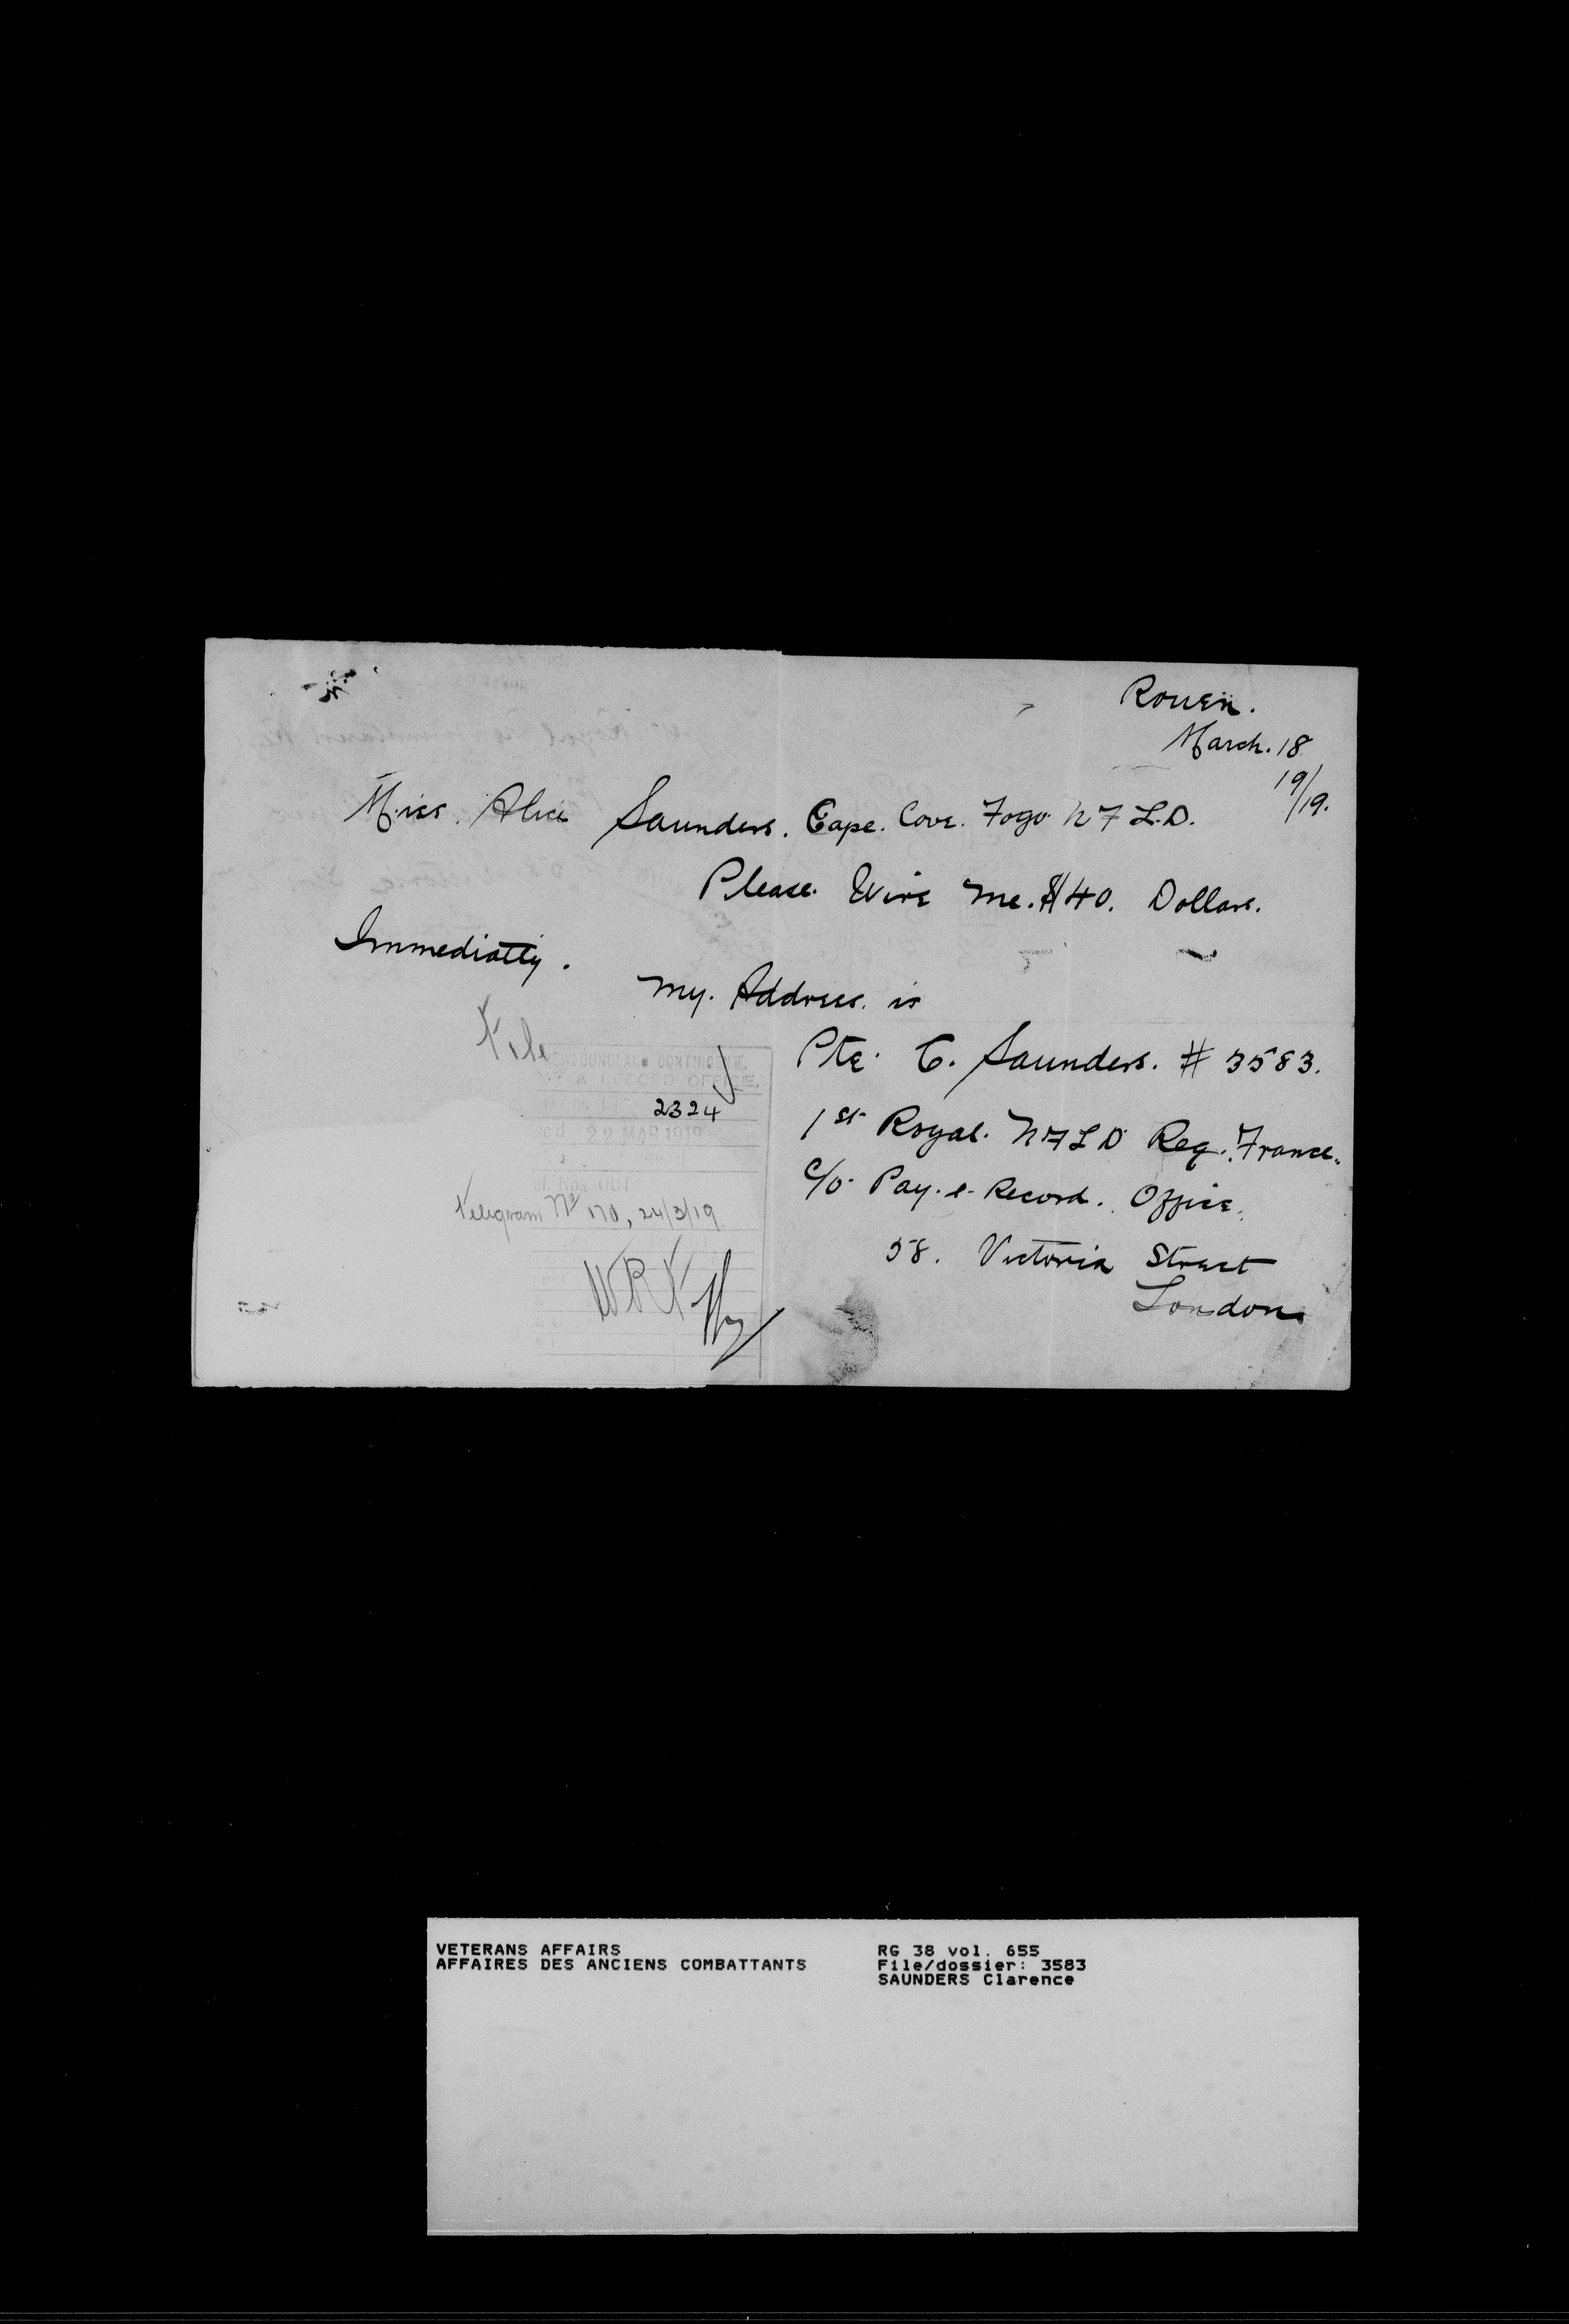 Rouen.
March. 18
19/19.
Miss. Alice Saunders. Cape. Cove. Fogo NFL.D.
Please. Wire me. $40. Dollars.
Immediatly.
My. Address. is
Pte. C. Saunders. # 3583.
1st Royal. NFLD Reg. France.
c/o Pay. & Record. Office.
58. Victoria Street
London
File
NEWFOUNDLAND CONTINGENT.
PAY & RECORD OFFICE.
2324
22 MAR 1919
Telegram No 170, 24/3/19
VETERANS AFFAIRS
AFFAIRES DES ANCIENS COMBATTANTS
RG 38 vol. 655
File/dossier: 3583
SAUNDERS Clarence